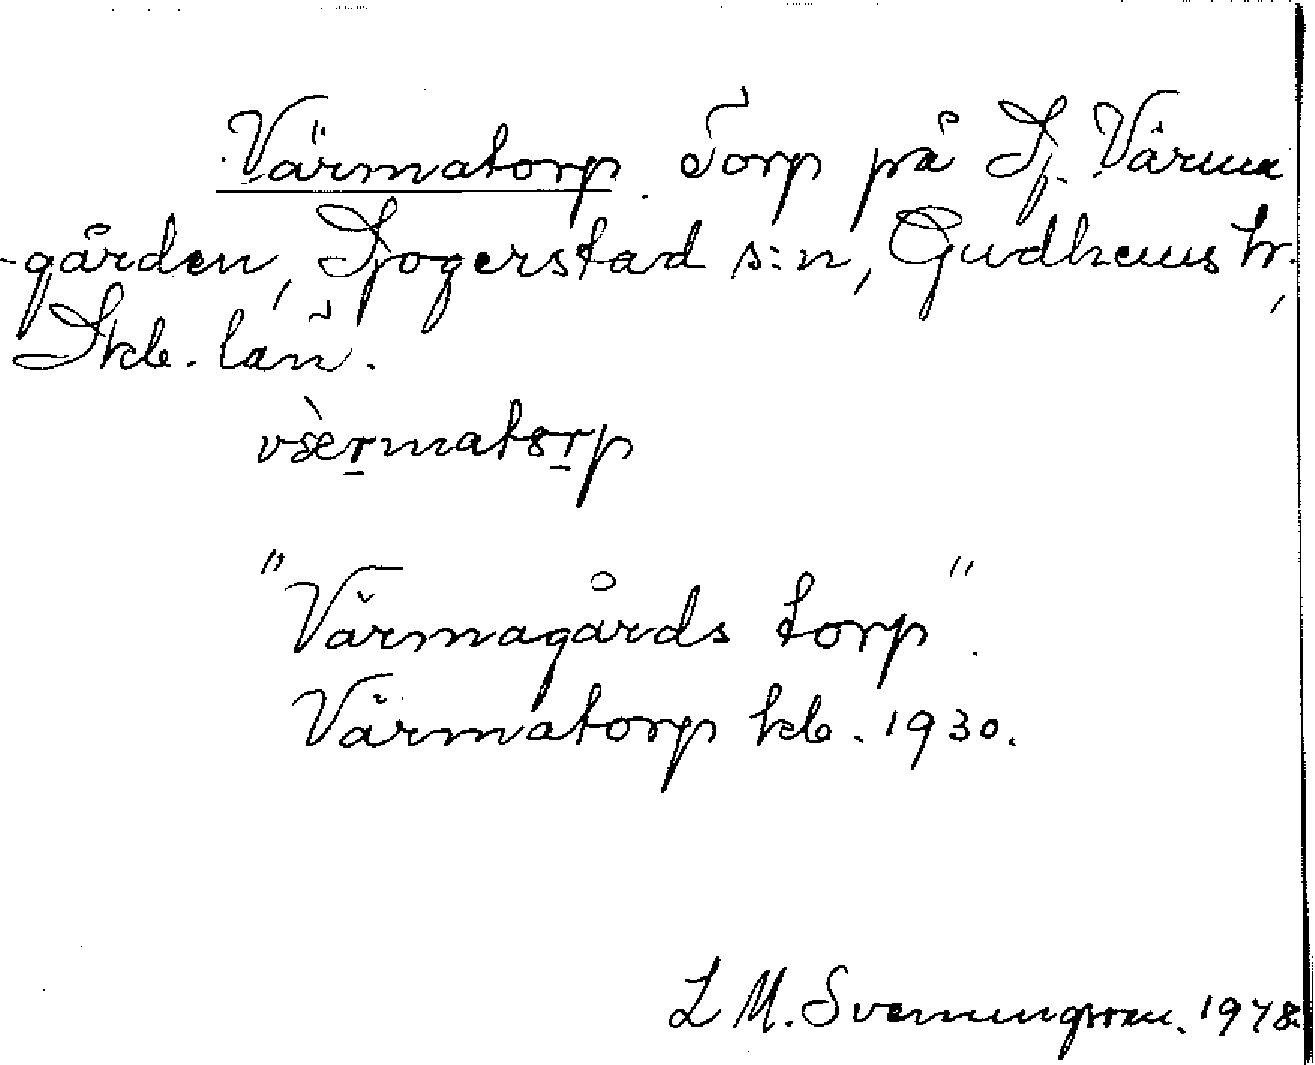 Värmatorp. Torp på Sj. Värma
-gården, Sjogerstad s:n, Gudhems hr.,
Skb. län.
"Värmagårds torp".
Värmatorp kb. 1930.
L M. Svenungsson. 1978.